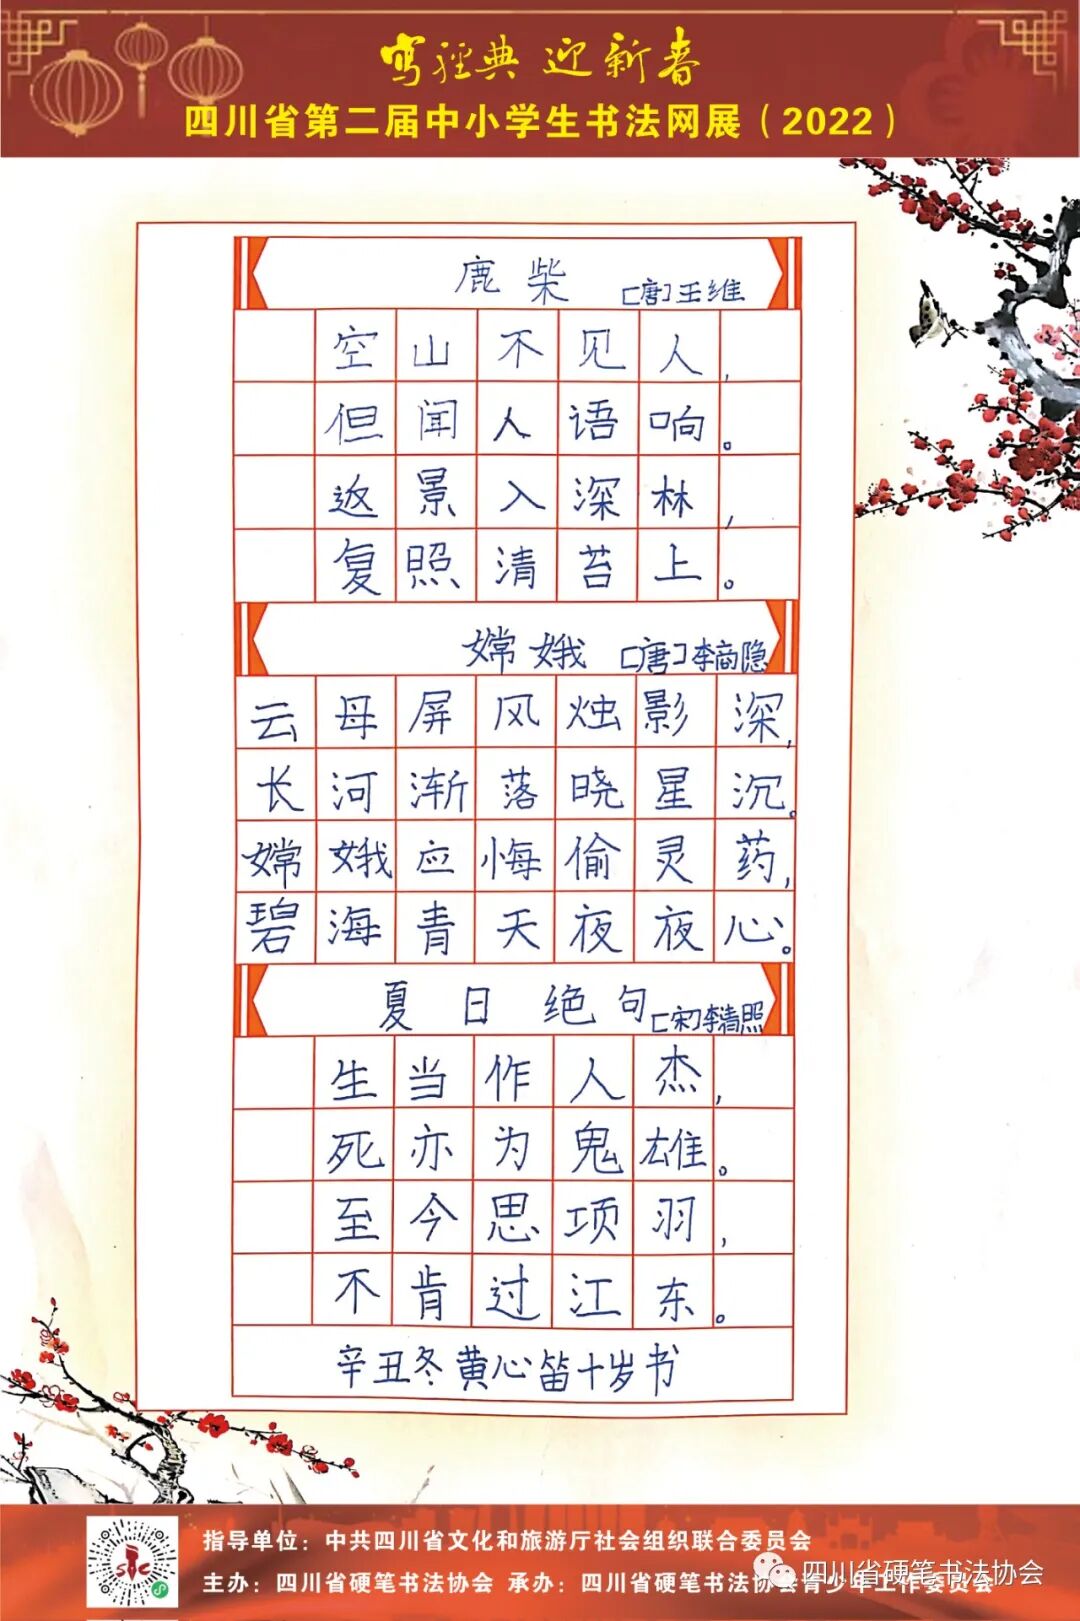 写经典 迎新春
四川省第二届中小学生书法网展（2022）
鹿柴 [唐]王维
空山不见人，
但闻人语响。
返景入深林，
复照清苔上。
嫦娥 [唐]李商隐
云母屏风烛影深，
长河渐落晓星沉。
嫦娥应悔偷灵药，
碧海青天夜夜心。
夏日绝句 [宋]李清照
生当作人杰，
死亦为鬼雄。
至今思项羽，
不肯过江东。
辛丑冬黄心笛十岁书
指导单位：中共四川省文化和旅游厅社会组织联合委员会
主办：四川省硬笔书法协会 承办：四川省硬笔书法协会青少年工作委员会
四川省硬笔书法协会